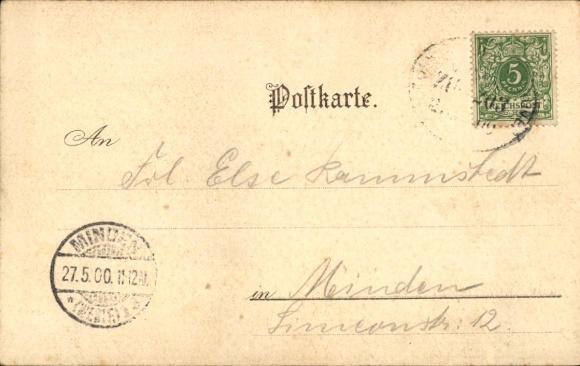 5
Postkarte.
An
Frl. Else Rammstedt
MINDEN
27.5.00. 11-12N.
* (WESTF.) *
in Minden
Simeonstr. 12